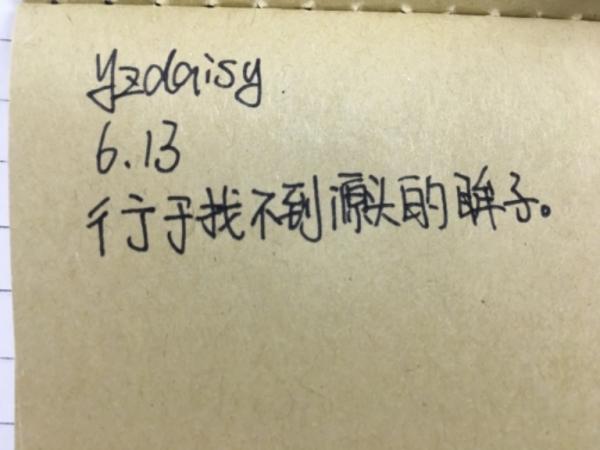 yzdaisy
6.13
行于找不到源头的眸子。